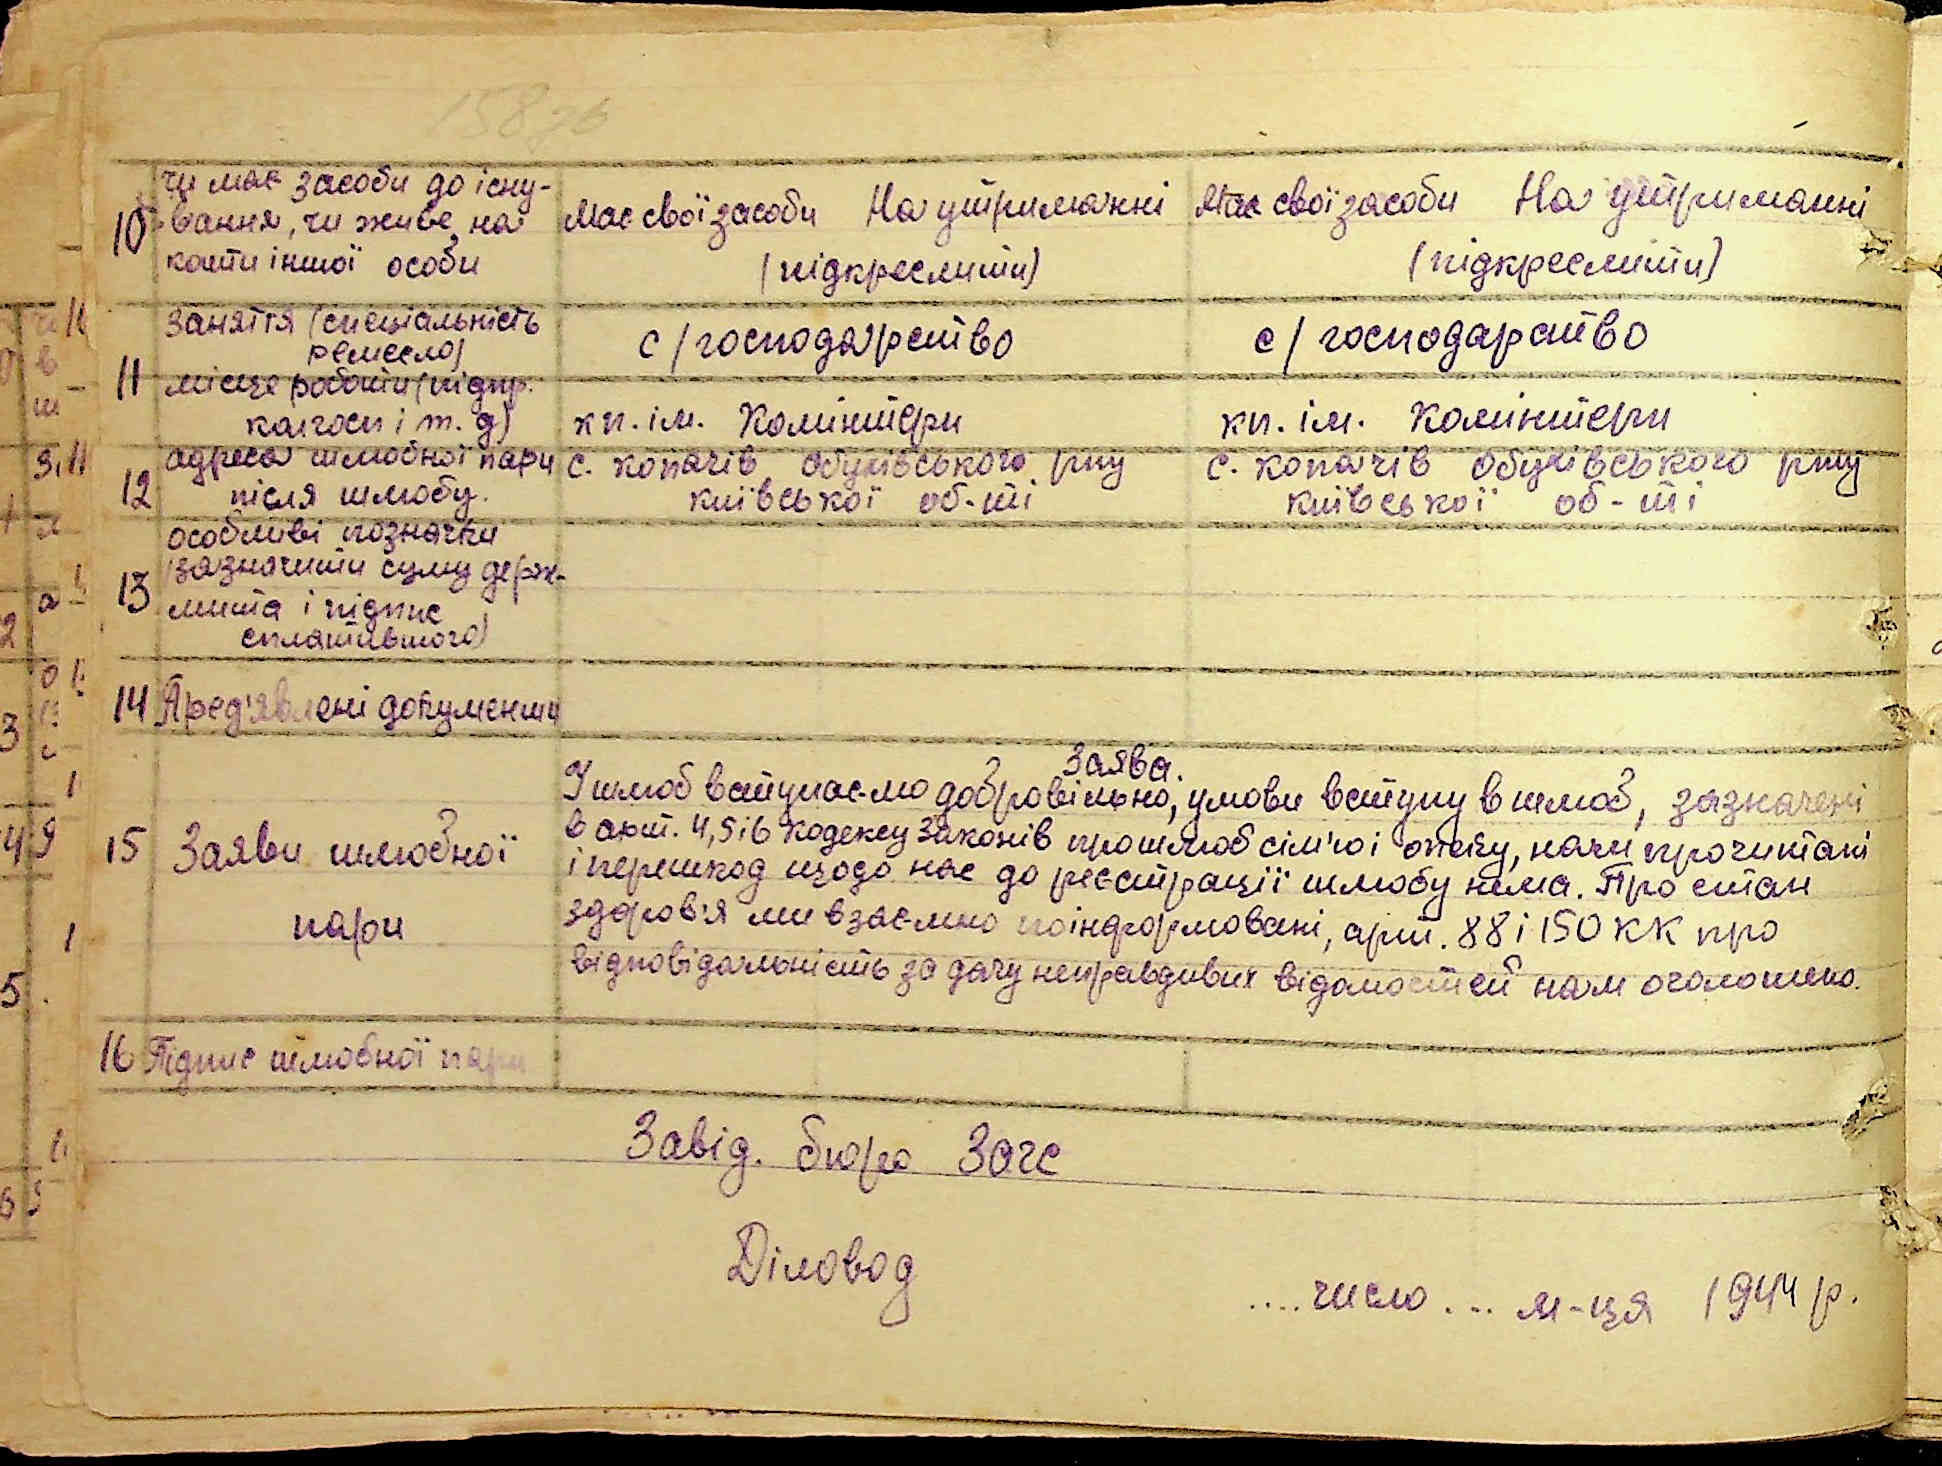 158 зв
10 чи має засоби до існу-
вання, чи живе на
кошти іншої особи
Має свої засоби На утриманні
(підкреслити)
Має свої засоби На утриманні
(підкреслити)
11 заняття (спеціальність
ремесло)
с/господарство
с/господарство
місце роботи (підпр.
колгосп і т. д)
кп. ім. Комінтерн
кп. ім. Комінтерн
12 адреса шлюбної пари
після шлюбу.
с. Копачів Обухівського р-ну
київської об-ті
с. Копачів Обухівського р-ну
київської об-ті
13 особливі позначки
(зазначити суму держ-
мита і підпис
сплатившого)
14 Пред'явлені документи
15 Заяви шлюбної
пари
Заява.
У шлюб вступаємо добровільно, умови вступу в шлюб, зазначені
в арт. 4,5 і 6 Кодексу Законів про шлюб сім'ю і опіку, нами прочитані
і перешкод щодо нас до реєстрації шлюбу нема. Про стан
здоров'я ми взаємно поінформовані, арт. 88 і 150 КК про
відповідальність за дачу неправдивих відомостей нам оголошено.
16 Підпис шлюбної пари
Завід. бюро Загс
Діловод
.... число .... м-ця 1944 р.